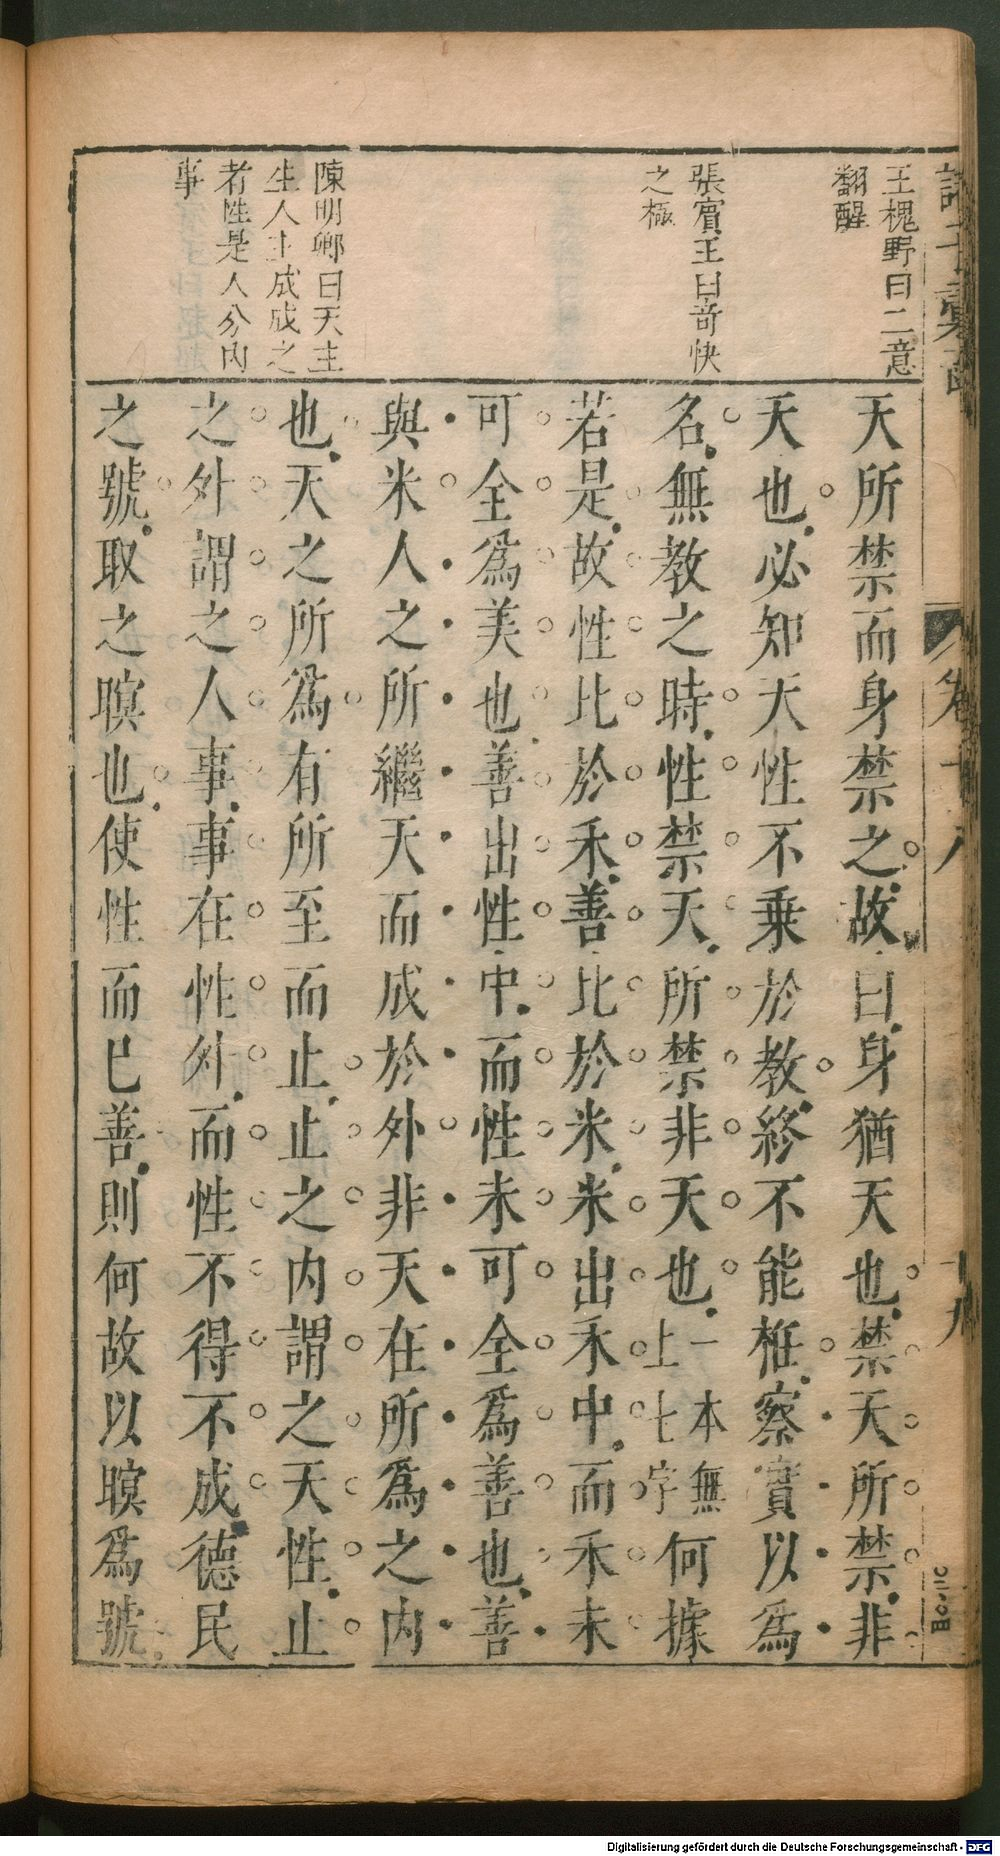 王槐野曰二意
翻醒
張賓王曰奇快
之極
陳明卿曰天主
生人主成成之
者性是人分內
事
天所禁而身禁之故曰身猶天也禁天所禁非
天也必知天性不乗於教終不能桎察實以爲
名無教之時性禁天所禁非天也一本無上七字何據
若是故性比於禾善比於米米出禾中而禾未
可全爲美也善出性中而性未可全爲善也善
與米人之所繼天而成於外非天在所爲之內
也天之所爲有所至而止止之內謂之天性止
之外謂之人事事在性外而性不得不成德民
之號取之瞑也使性而已善則何故以瞑爲號
卷十八
十九
Bc.11C
Digitalisierung gefördert durch die Deutsche Forschungsgemeinschaft - DFG